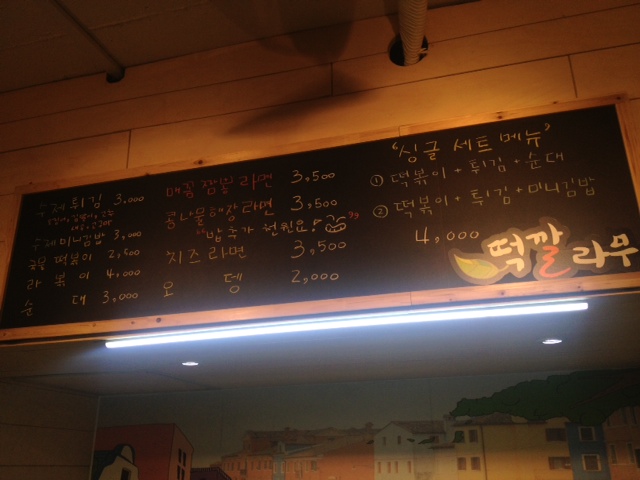 수제튀김 3,000
수제미니김밥 3,000
국물 떡볶이 2,500
라볶이 4,000
순대 3,000
매콤짬뽕라면 3,500
콩나물해장라면 3,500
밥추가 천원요!
치즈라면 3,500
오뎅 2,000
"싱글 세트메뉴"
① 떡볶이 + 튀김 + 순대
② 떡볶이 + 튀김 + 미니김밥
4,000
떡깔라무